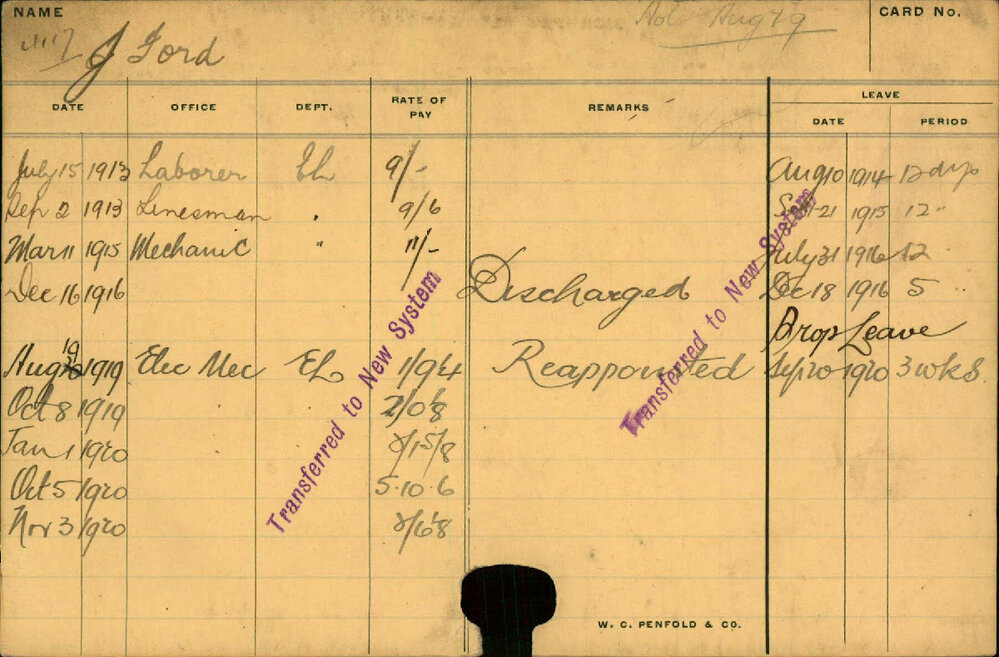 NAME
J Ford
Aug 19
CARD No.
DATE OFFICE DEPT. RATE OF PAY REMARKS LEAVE
DATE PERIOD
July 15 1913 Laborer EL 9/- Aug 10 1914 12 dys
Sep 2 1913 Linesman " 9/6 21 1915 12 "
Mar 11 1915 Mechanic " 11/- July 31 1916 12
Dec 16 1916 Discharged Dec 18 1916 5 "
Prop Leave
Aug 19 1919 Elec Mec EL Reappointed Sep 20 1920 3 wks
Oct 8 1919
Jan 1 1920
Oct 5 1920 5.10.6
Nov 3 1920
Transferred to New System
Transferred to New System
W. C. PENFOLD & CO.